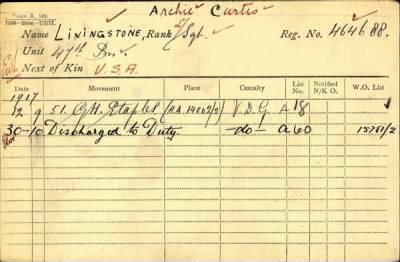 Archie Curtis
Name LIVINGSTONE, Rank Sgt. Reg. No. 464688.
Unit 47th Bn
Next of Kin U.S.A.
Date Movement Place Casualty List No. Notified N/K O. W.O. List
1917
12 9 51. G.H. Etaples (H.A. V.D.G. A18
30-10 Discharged to Duty. -do- A60